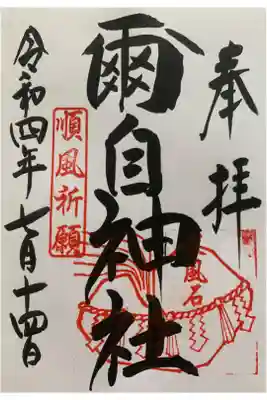 奉拝
爾自神社
順風祈願
東風石
令和四年七月十四日